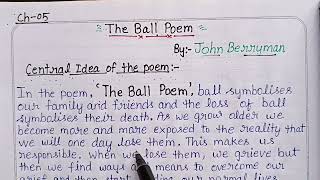 Ch-05
The Ball Poem
By:- John Berryman
Central Idea of the poem:-
In the poem, 'The Ball Poem', ball symbolises
our family and friends and the loss of ball
symbolises their death. As we grow older we
become more and more exposed to the reality that
we will one day lose them. This makes us
responsible. When we lose them, we grieve but
then we find ways and means to overcome our
grief and then start our normal lives